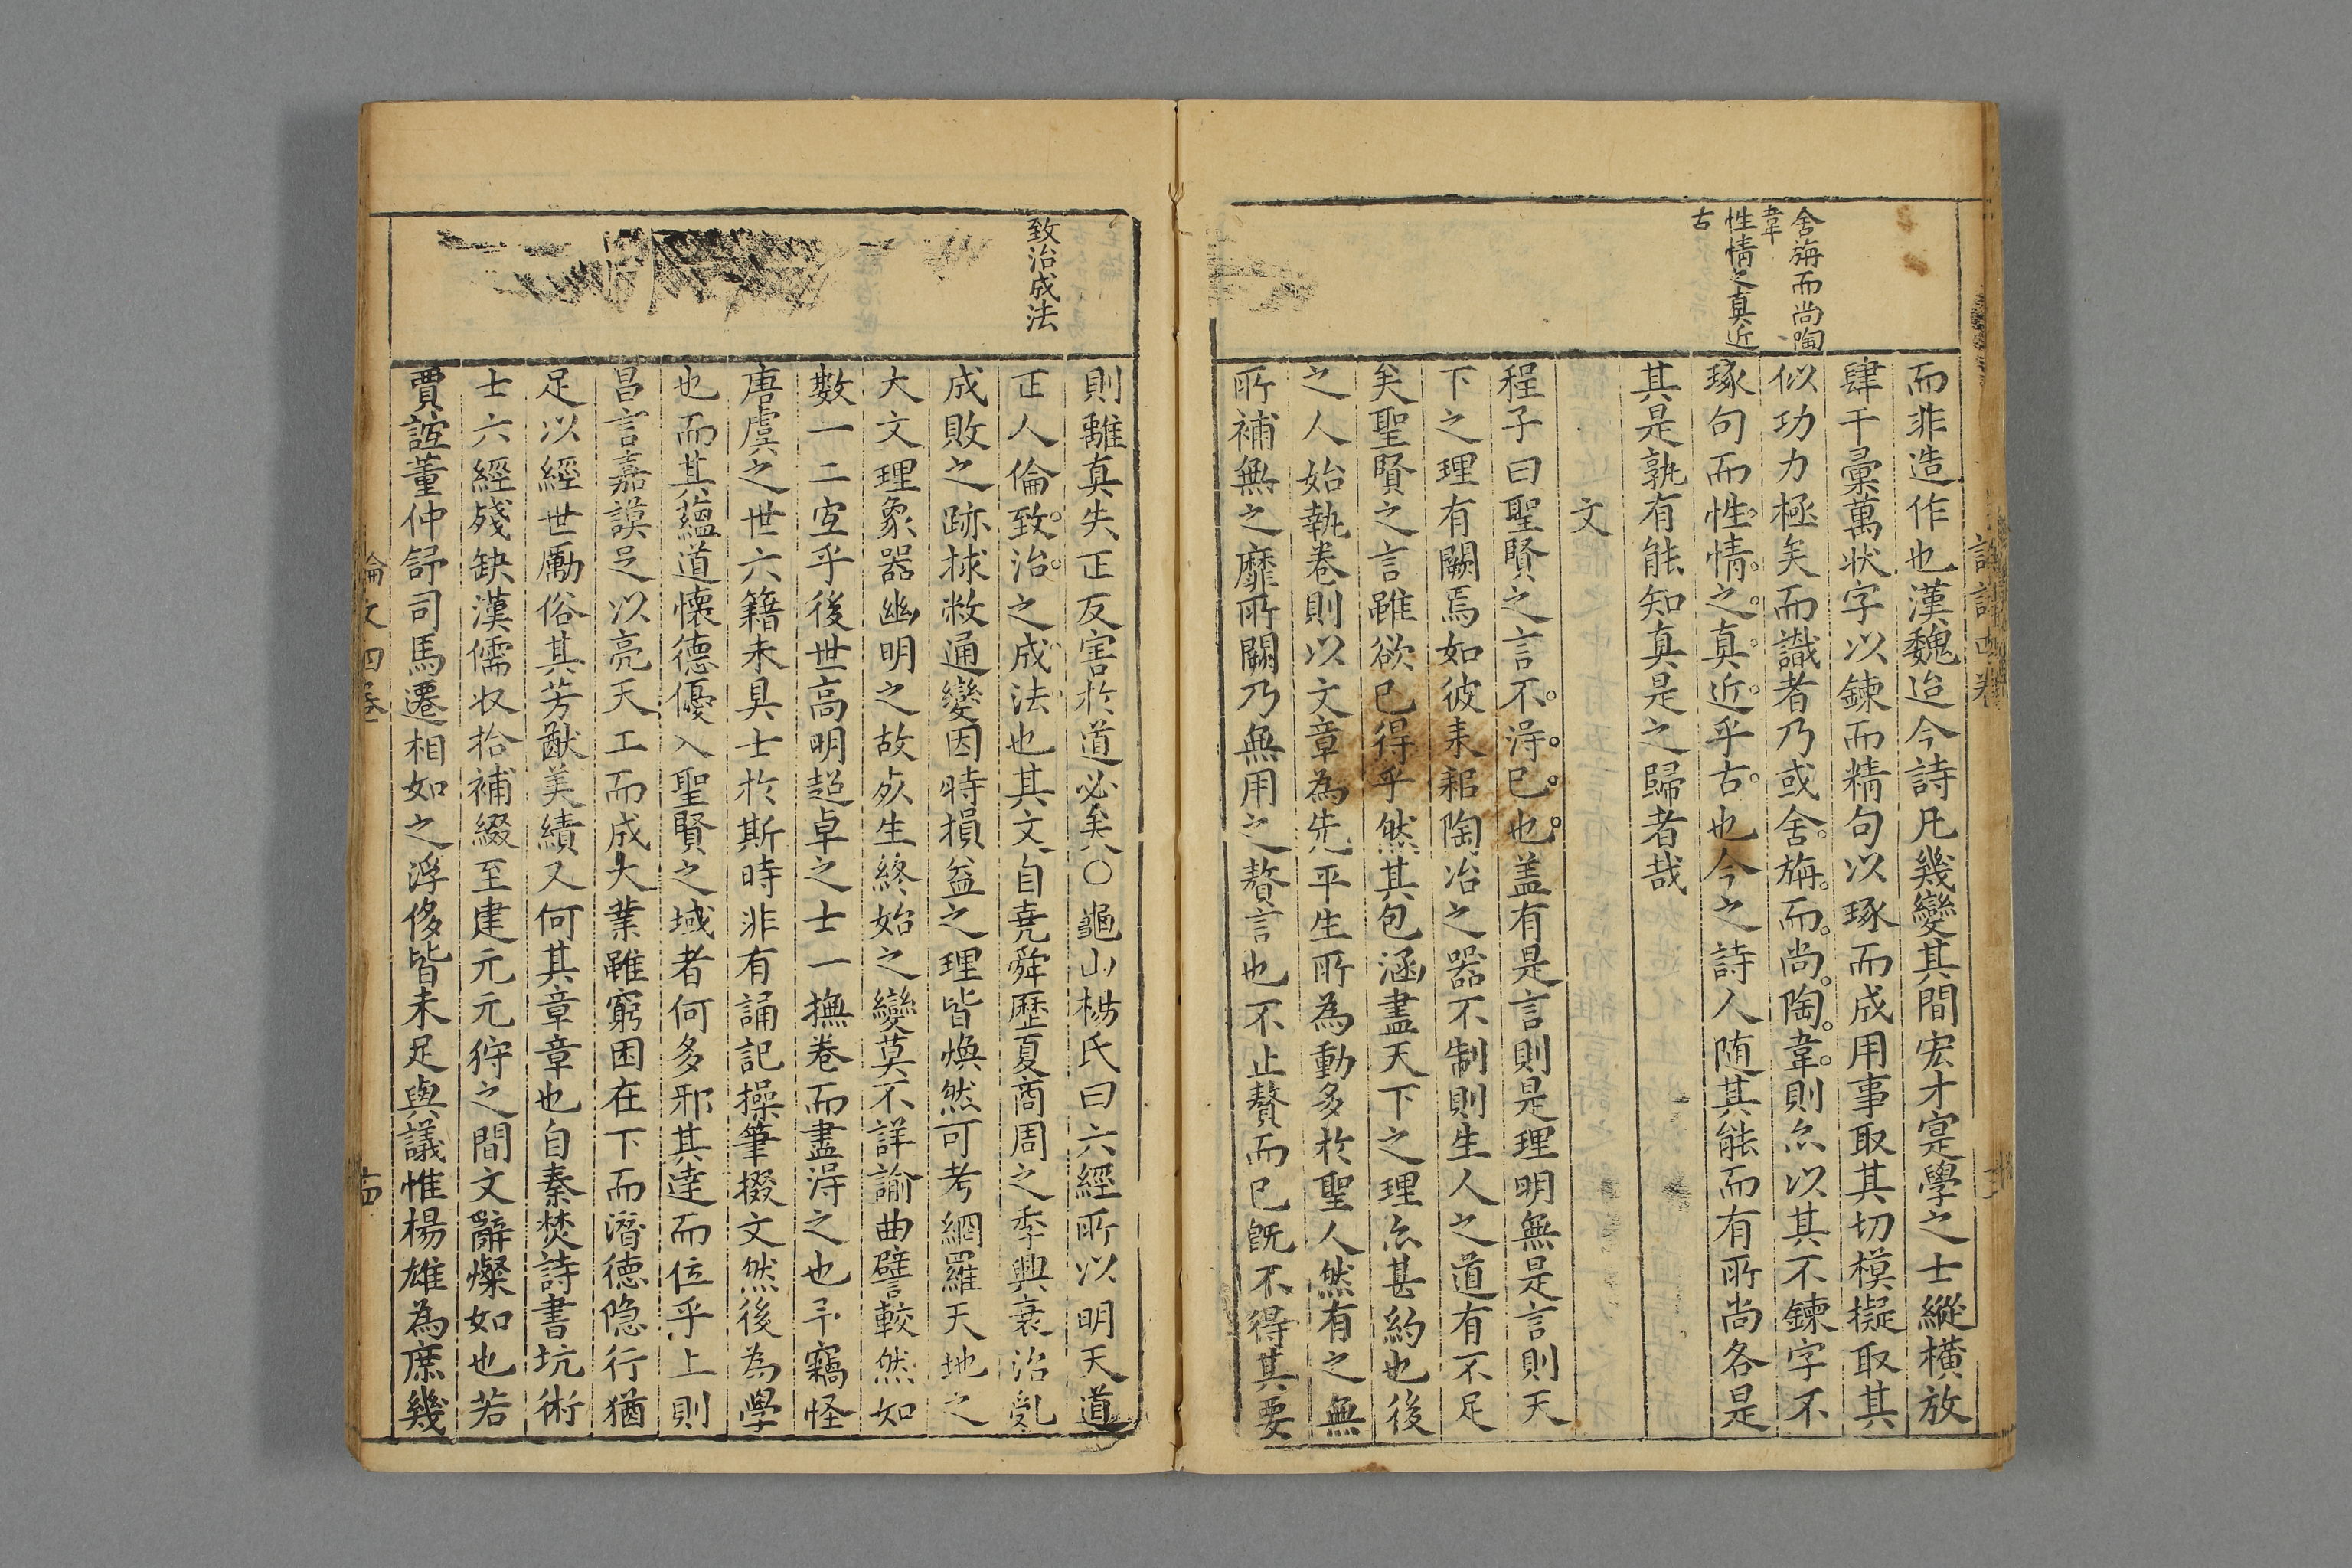 舍旃而尚陶
韋
性情之真近
古
而非造作也漢魏迨今詩凡幾變其間宏才寔學之士縱橫放
肆千彙萬状字以鍊而精句以琢而成用事取其切模擬取其
似功力極矣而識者乃或舍旃而尚陶韋則亦以其不鍊字不
琢句而性情之真近乎古也今之詩人随其能而有所尚各是
其是孰有能知真是之歸者哉
文
程子曰聖賢之言不淂已也盖有是言則是理明無是言則天
下之理有闕焉如彼耒耜陶冶之器不制則生人之道有不足
矣聖賢之言雖欲已得乎然其包涵盡天下之理亦甚約也後
之人始執卷則以文章為先平生所為動多扵聖人然有之無
所補無之靡所闕乃無用之贅言也不止贅而已旣不得其要
致治成法
則離真失正反害扵道必矣○龜山楊氏曰六經所以明天道
正人倫致治之成法也其文自堯舜歷夏商周之季興衰治乱
成敗之跡捄敝通變因時損益之理皆煥然可考網羅天地之
大文理象器幽明之故死生終始之變莫不詳諭曲譬較然如
數一二宜乎後世高明超卓之士一撫卷而盡淂之也予竊怪
唐虞之世六籍未具士扵斯時非有誦記操筆掇文然後為學
也而其蘊道懐德優入聖賢之域者何多邪其達而位乎上則
昌言嘉謨足以亮天工而成大業雖窮困在下而潛德隐行猶
足以經世勵俗其芳猷美績又何其章章也自秦焚詩書坑術
士六經殘缺漢儒収拾補綴至建元元狩之間文辭燦如也若
賈誼董仲舒司馬遷相如之浮侈皆未足與議惟楊雄為庶幾
論文四卷